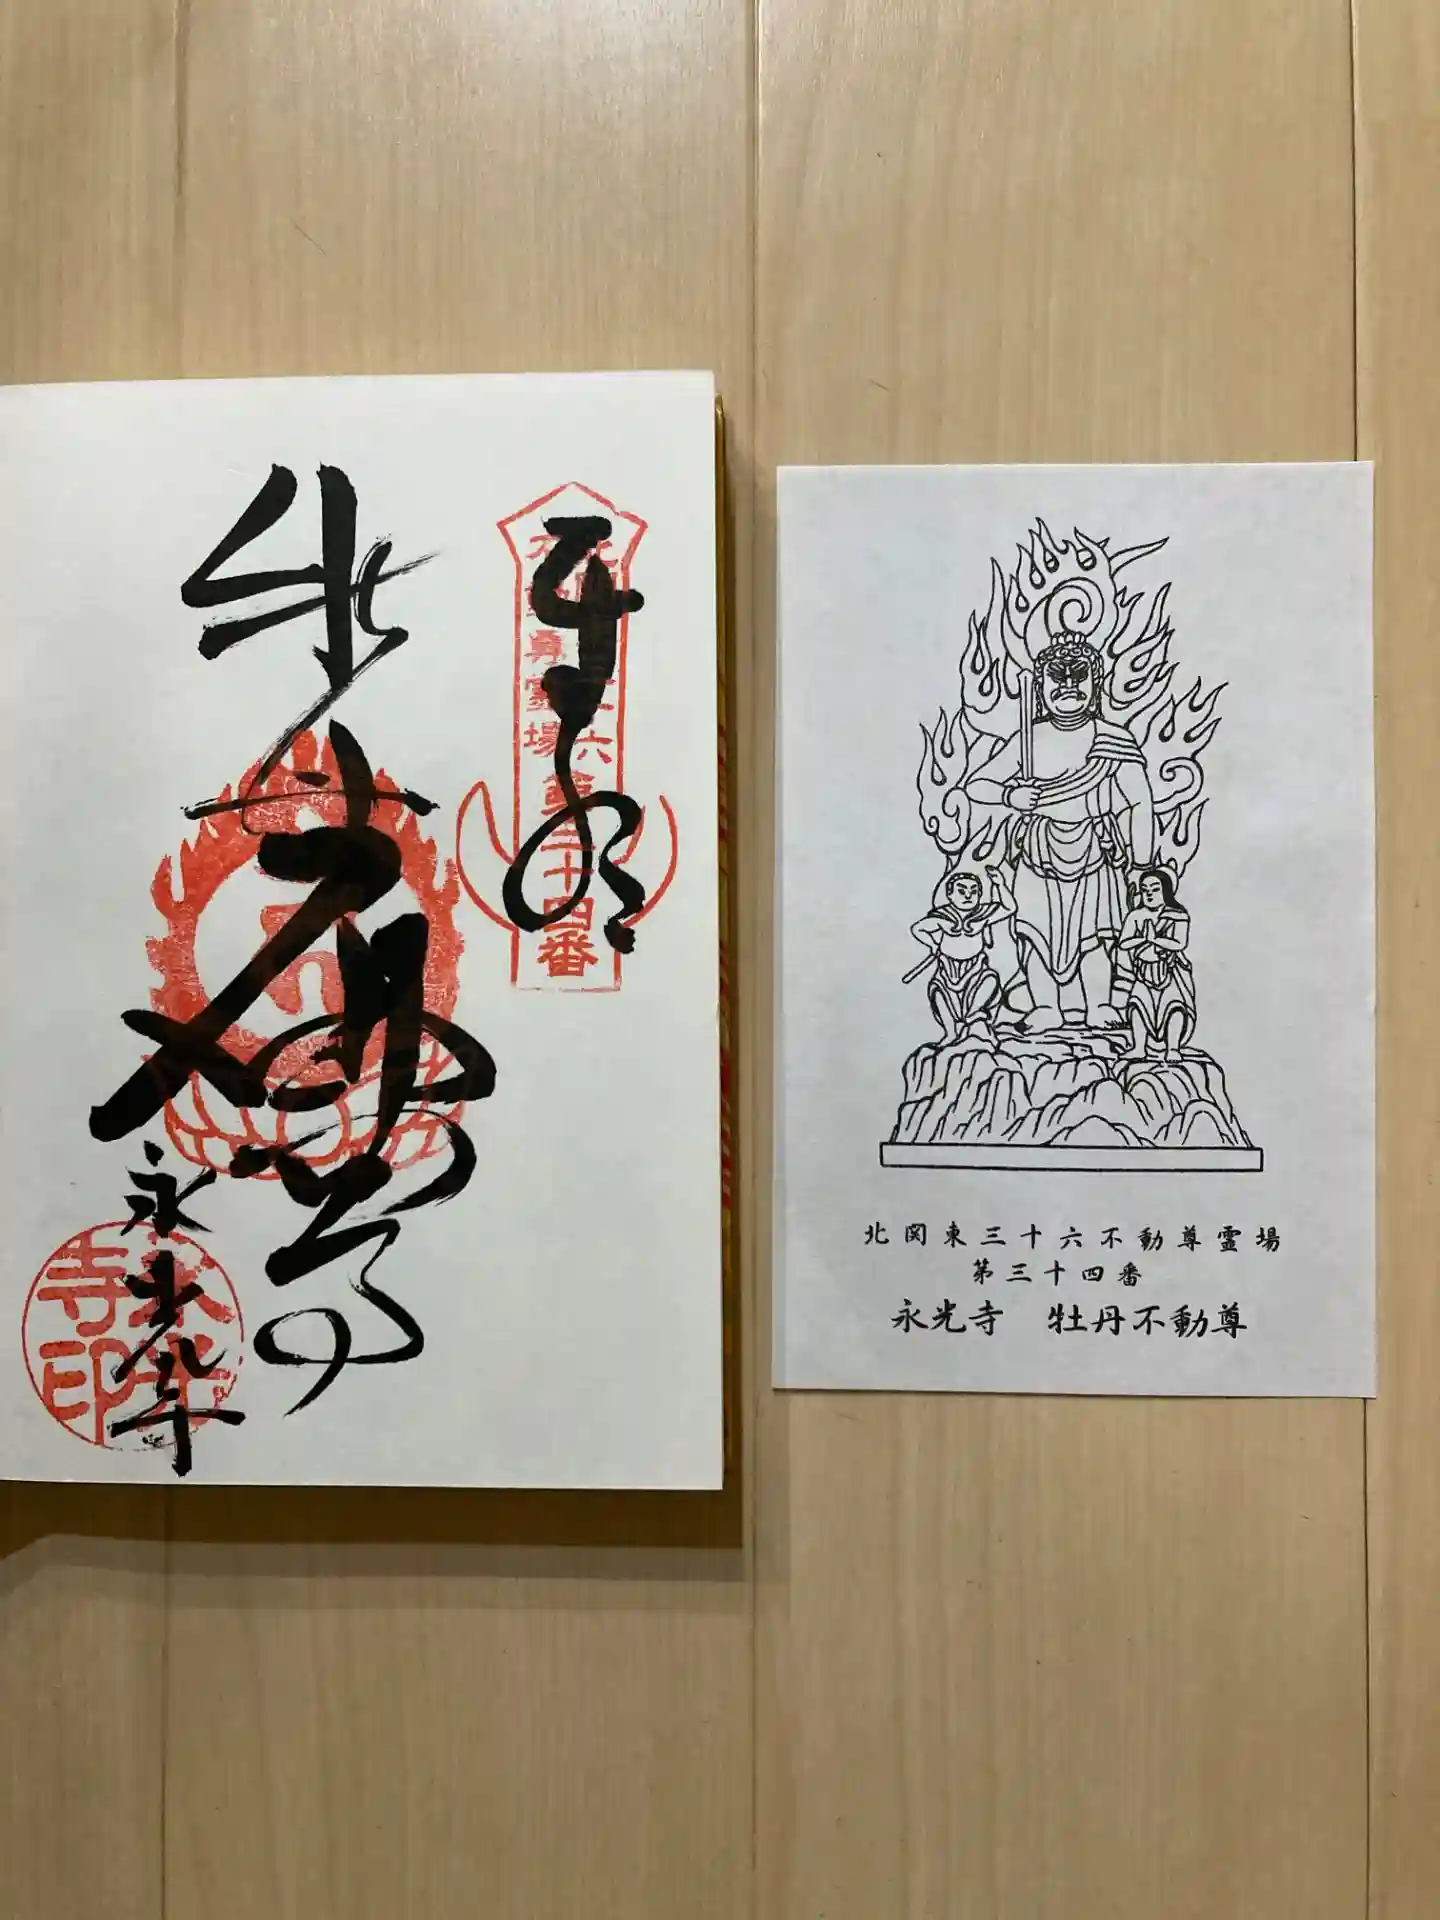 奉拝
北関東三十六
不動尊霊場
第三十四番
牡丹不動尊
永光寺
永光寺印
北関東三十六不動尊霊場
第三十四番
永光寺 牡丹不動尊